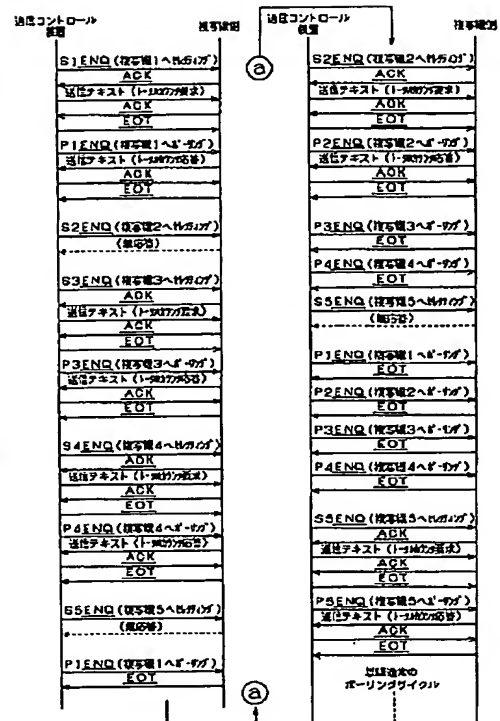 通信コントロール
装置
複写機側
S1ENQ(複写機1へセレクティング)
ACK
送信テキスト(トータルカウンタ要求)
ACK
EOT
P1ENQ(複写機1へポーリング)
送信テキスト(トータルカウンタ応答)
ACK
EOT
S2ENQ(複写機2へセレクティング)
(無応答)
S3ENQ(複写機3へセレクティング)
ACK
送信テキスト(トータルカウンタ要求)
ACK
EOT
P3ENQ(複写機3へポーリング)
送信テキスト(トータルカウンタ応答)
ACK
EOT
S4ENQ(複写機4へセレクティング)
ACK
送信テキスト(トータルカウンタ要求)
ACK
EOT
P4ENQ(複写機4へポーリング)
送信テキスト(トータルカウンタ応答)
ACK
EOT
S5ENQ(複写機5へセレクティング)
(無応答)
P1ENQ(複写機1へポーリング)
EOT
a
a
通信コントロール
装置
複写機側
S2ENQ(複写機2へセレクティング)
ACK
送信テキスト(トータルカウンタ要求)
ACK
EOT
P2ENQ(複写機2へポーリング)
送信テキスト(トータルカウンタ応答)
ACK
EOT
P3ENQ(複写機3へポーリング)
EOT
P4ENQ(複写機4へポーリング)
EOT
S5ENQ(複写機5へセレクティング)
(無応答)
P1ENQ(複写機1へポーリング)
EOT
P2ENQ(複写機2へポーリング)
EOT
P3ENQ(複写機3へポーリング)
EOT
P4ENQ(複写機4へポーリング)
EOT
S5ENQ(複写機5へセレクティング)
ACK
送信テキスト(トータルカウンタ要求)
ACK
EOT
P5ENQ(複写機5へポーリング)
送信テキスト(トータルカウンタ応答)
ACK
EOT
以降通常の
ポーリングサイクル